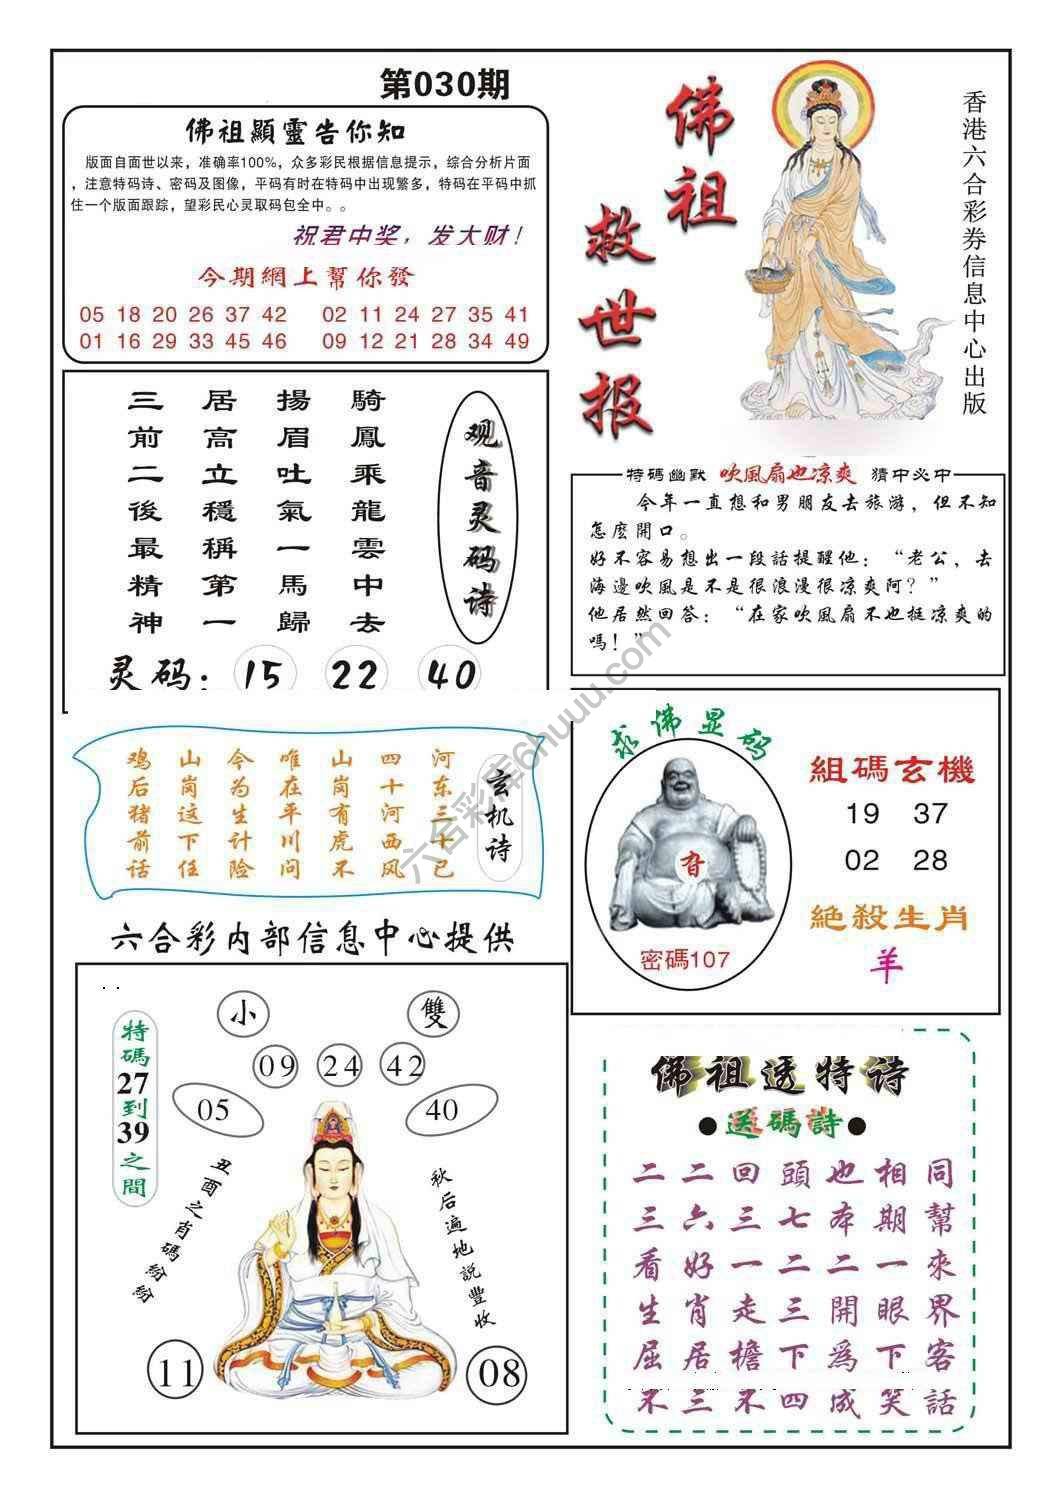 第030期
佛祖顯靈告你知
版面自面世以来，准确率100%，众多彩民根据信息提示，综合分析片面
，注意特码诗、密码及图像，平码有时在特码中出现繁多，特码在平码中抓
住一个版面跟踪，望彩民心灵取码包全中。。
祝君中奖，发大财！
今期網上幫你發
05 18 20 26 37 42 02 11 24 27 35 41
01 16 29 33 45 46 09 12 21 28 34 49
佛祖
救世报
香港六合彩券信息中心出版
观音灵码诗
騎鳳乘龍雲中去
揚眉吐氣一馬歸
居高立穩稱第一
三前二後最精神
灵码：15 22 40
特碼幽默 吹風扇也凉爽 猜中必中
今年一直想和男朋友去旅游，但不知
怎麽開口。
好不容易想出一段話提醒他：“老公，去
海邊吹風是不是很浪漫很凉爽阿？”
他居然回答：“在家吹風扇不也挺凉爽的
嗎！”
玄机诗
河东三十已
四十河西风
山岗有虎不
唯在平川问
今为生计险
山岗这下任
鸡后猪前话
求佛显码
密碼107
組碼玄機
19 37
02 28
絶殺生肖
羊
六合彩内部信息中心提供
特碼27到39之間
小 雙
09 24 42
05 40
丑酉之肖碼紛紛
秋后遍地説豐收
11 08
佛祖透特诗
●送碼詩●
二二回頭也相同
三六三七本期幫
看好一二二一來
生肖走三開眼界
屈居檐下爲下客
不三不四成笑話
六合彩库6huuu.com